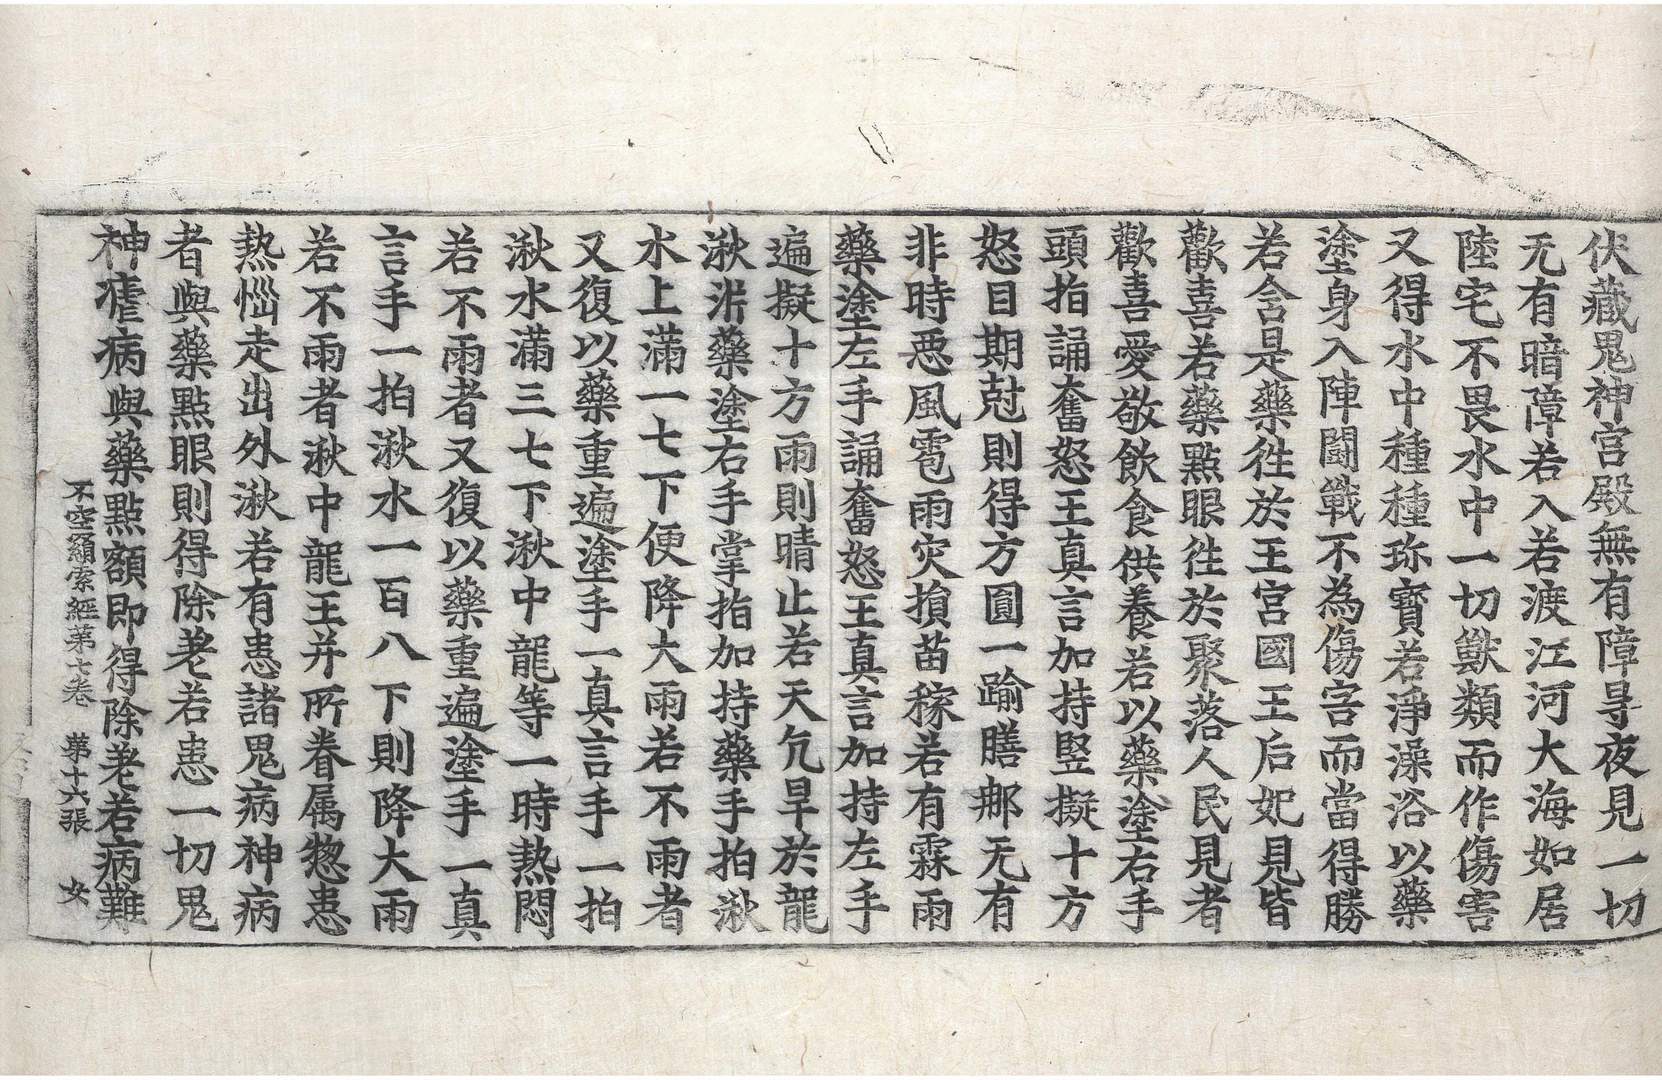 伏藏鬼神宮殿無有障㝵夜見一切
无有暗障若入若渡江河大海如居
陸宅不畏水中一切獸類而作傷害
又得水中種種珎寶若淨澡浴以藥
塗身入陣鬪戰不為傷害而當得勝
若含是藥徃於王宮國王后妃見皆
歡喜若藥點眼徃於聚落人民見者
歡喜愛敬飲食供養若以藥塗右手
頭指誦奮怒王真言加持竪擬十方
怒目期尅則得方圓一踰膳那无有
非時惡風雹雨灾損苗稼若有霖雨
藥塗左手誦奮怒王真言加持左手
遍擬十方雨則晴止若天亢旱於龍
湫泮藥塗右手掌指加持藥手拍湫
水上滿一七下便降大雨若不雨者
又復以藥重遍塗手一真言手一拍
湫水滿三七下湫中龍等一時熱悶
若不雨者又復以藥重遍塗手一真
言手一拍湫水一百八下則降大雨
若不雨者湫中龍王并所眷属惣患
熱惱走出外湫若有患諸鬼病神病
者與藥點眼則得除差若患一切鬼
神瘧病與藥點額即得除差若病難
不空羂索經第七卷　第十六張　女